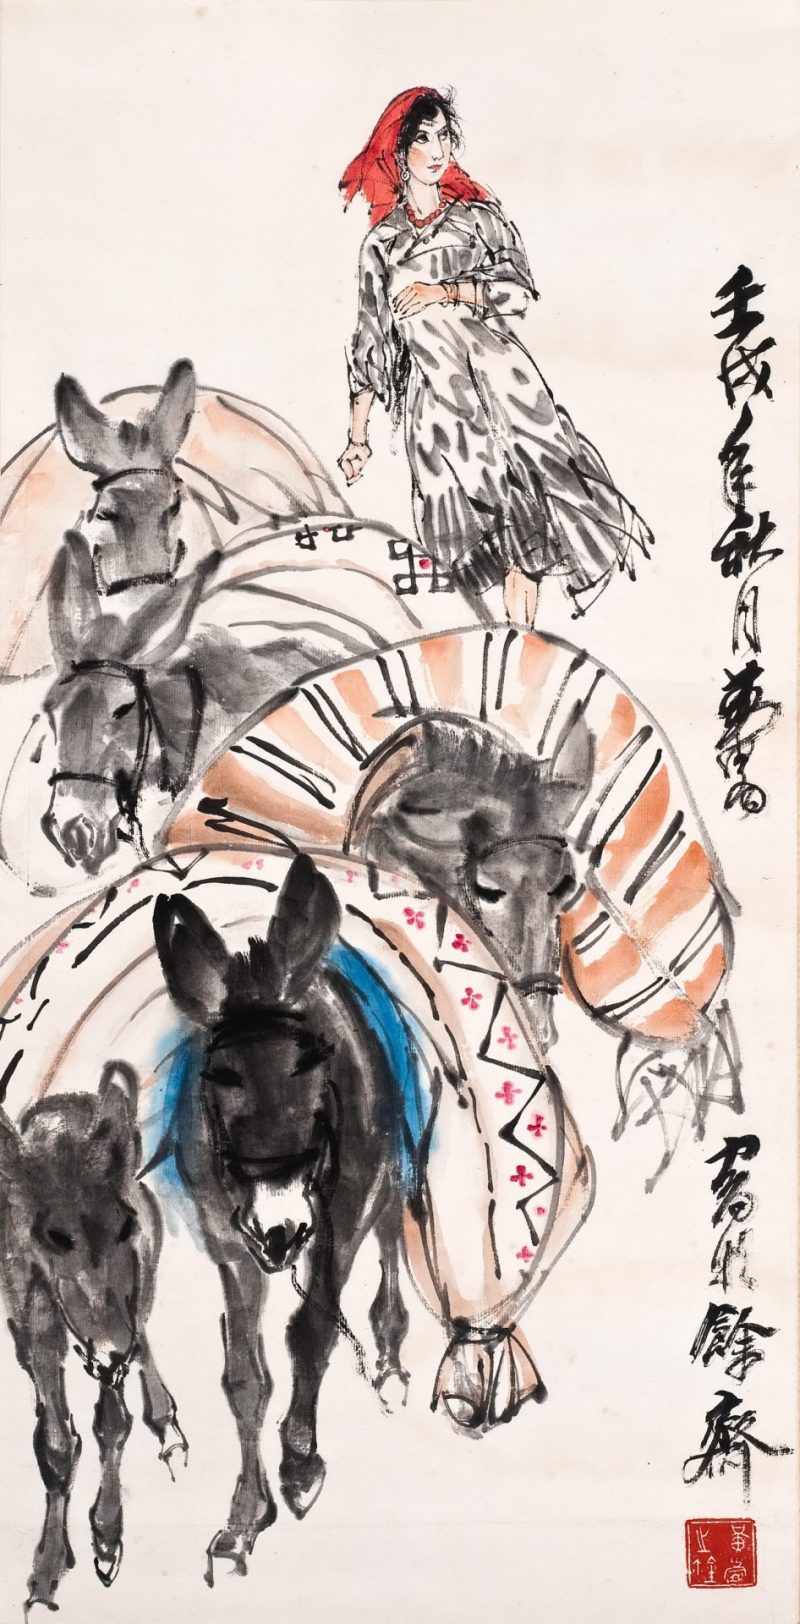 壬戌年秋月黄胄
寫於餘齋
黄胄